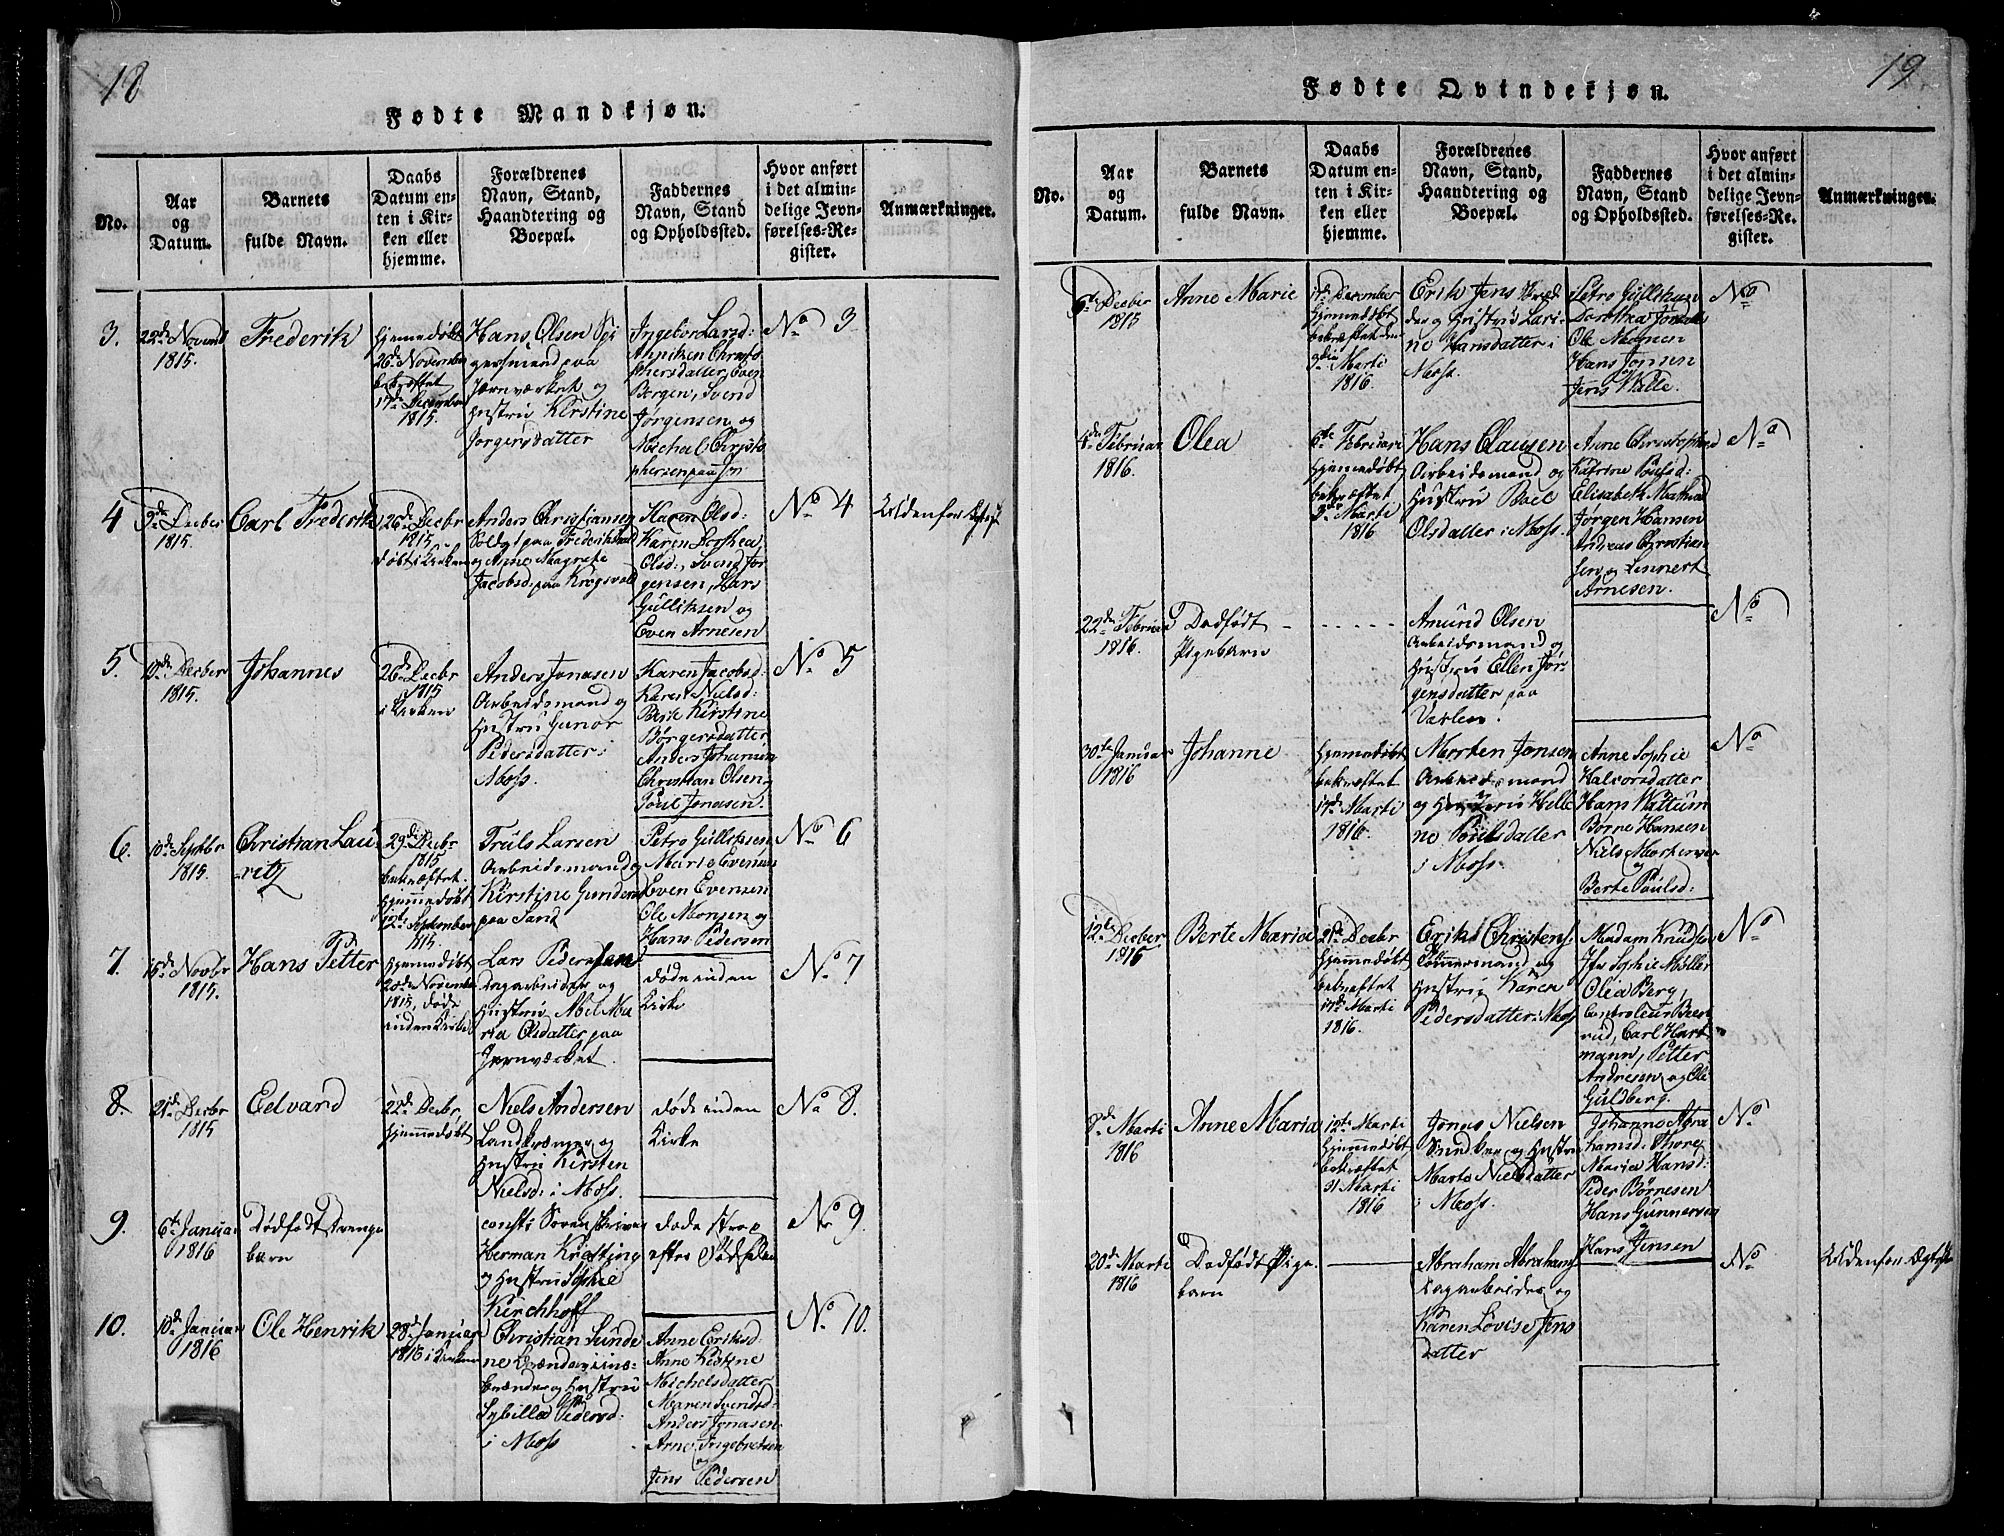 18
Fødte Mandkjøn.
No.
Aar
og
Datum.
Barnets
fulde Navn.
Daabs
Datum en-
ten i Kir-
ken eller
hjemme.
Forældrenes
Navn, Stand,
Haandtering og
Boepæl.
Faddernes
Navn, Stand
og Opholdssted.
Hvor anført
i det almin-
delige Jevn-
førelses-Re-
gister.
Anmærkninger.
3.
22de Novemb
1815.
Frederik
hjemmedøbt
26de November
bekræftet
17de December
1815.
Hans Olsen
paa
Jernværket og
Hustru Kirstine
Jørgensdatter
Ingebor Larsd:
Anniken Christo
phersdatter, Even
Bergen, Svend
Jørgensen og
Michel Christo
phersen paa
No 3
4
9de Decbr
1815.
Carl Frederik
26de Decbr
1815
døbt i Kirken
Anders Christiansen
Soldat paa Frederikstad
og Anne Magrete
Jacobsd: paa Krogsvold
Karen Olsd:
Karen Dorthea
Olsd:, Svend Jør
gensen, Lars
Gulliksen og
Even Arnesen
No 4
Udenfor Ægtesk
5.
10de Decbr
1815.
Johannes
26de Decbr
1815
i Kirken
Anders Jonasen
Arbeidsmand og
Hustru Gunor
Pedersdatter i
Moss.
Karen Jacobsd:
Karen Nielsd:
Berte Kirstine
Børgersdatter
Anders Johansen
Christian Olsen
Poul Jonasen.
No 5
6.
10de Septbr
1815.
Christian Lau
ritz
29de Decbr
1815
bekræftet.
hjemmedøbt
12te September
1815.
Truls Larsen
Arbeidsmand og
Kirstine Gunders
paa Sand
Petro Gulliksen
Marie Evensd
Even Evensen
Ole Monsen og
Hans Pedersen
No 6
7.
15de Novbr
1815.
Hans Petter
hjemmedøbt
20de November
1815, døde
inden Kirke
Lars Pedersen
Dagarbeider og
Hustru Abel Ma
ria Olsdatter paa
Jernværket.
døde inden
Kirke
No 7
8.
21de Decbr
1815
Edvard
22de Decbr
hjemmedøbt
Niels Andersen
Landkræmmer og
Hustru Kirsten
Nielsd: i Moss.
døde inden
Kirke
No 8.
9.
6te Januar
1816
Dødfødt Drenge
barn
const: Sorenskriver
Herman Kristing
og Hustru Sophie
Kirchhoff
døde strax
efter Fødselen
No 9.
10.
10de Januar
1816
Ole Henrik
28de Januar
1816 i Kirken
Christian Sunde
ne Brændeviins-
brænder og Hustru
Sybille Pedersd:
i Moss
Anne Eriksd:
Anne Kirstine
Michelsdatter
Maren Svendsd:
Anders Jonasen
Arne Ingebretsen
og
Jens Pedersen
No 10.
19
Fødte Qvindekjøn.
No.
Aar
og
Datum.
Barnets
fulde Navn.
Daabs
Datum en-
ten i Kir-
ken eller
hjemme.
Forældrenes
Navn, Stand,
Haandtering og
Boepæl.
Faddernes
Navn, Stand
og Opholdssted.
Hvor anført
i det almin-
delige Jevn-
førelses-Re-
gister.
Anmærkninger.
6te Decbr
1815
Anne Marie
17de December
hjemmedøbt
bekræftet den
9die Marti
1816.
Erik Jens
og Hustru Lari-
ne Hansdatter i
Moss.
Petro Gulliksen
Dorothea
Ole Monsen
Hans Jonsen
Jens Walle.
No
4de Februar
1816.
Olea
6te Februari
hjemmedøbt
bekræftet
9de Marti
1816
Hans Clausen
Arbeidsmand og
Hustru Boel
Olsdatter i Moss.
Anne Christophersd
Katrine Poulsd:
Elisabeth
Jørgen Hansen
Andreas Christian
sen og Lennert
Arnesen.
No
22de Februar
1816.
Dødfødt
Pigebarn
Amund Olsen
Arbeidsmand og
Hustru Ellen Jør
gensdatter paa
Varlen.
No
30te Januar
1816
Johanne
hjemmedøbt
bekræftet
17de Marti
1816.
Morten Jensen
Arbeidsmand
og Hustru Helle
ne Poulsdatter
i Moss.
Anne Sophie
Halvorsdatter
Hans Wattum
Børre Hansen
Niels Mortensen
og
Berte Paulsd:
No
12te Decbr
1815
Berte Maria
21de Decbr
hjemmedøbt
bekræftet
17de Marti
1816.
Erik Christens:
Tømmermand og
Hustru Karen
Pedersdatter i Moss
Madam Knudsen
Jfr Sophie Møller
Olea Berg,
Controleur
rud, Carl Hart
mann, Petter
Andresen og Ole
Guldberg.
No
8de Marti
1816
Anne Maria
12te Marti
hjemmedøbt
bekræftet
31 Marti
1816
Jonas Nielsen
og Hustru
Marte Nielsdatter
i Moss.
Johanne Abra
hamsd: Thore
Maria Hansd:
Peder Børnesen
Hans Gunnersen
Hans Jensen
No
20de Marti
1816
Dødfødt Pige
barn
Abraham Abrahams
Dagarbeider og
Karen Lovise Jens
datter
No
Udenfor Ægtesk